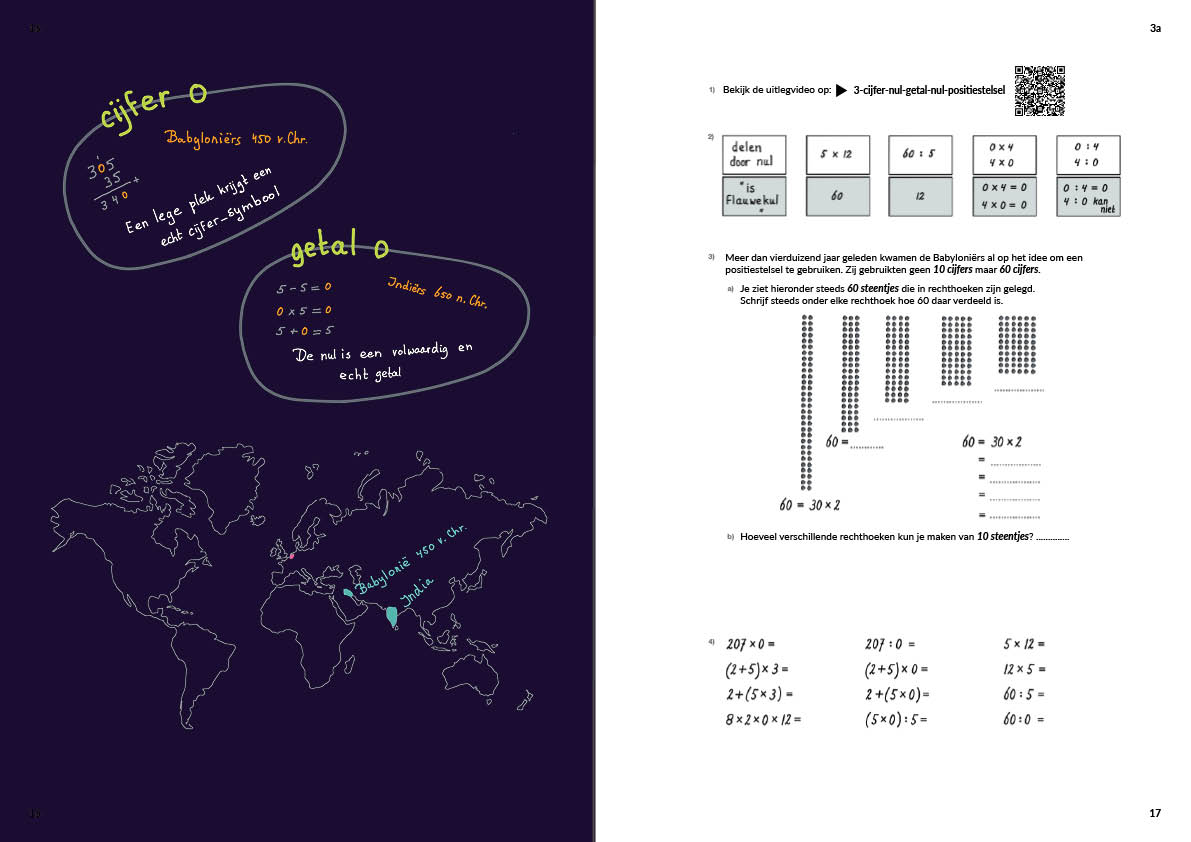 cijfer 0
Babyloniërs 450 v.Chr.
1
305
35
+
340
Een lege plek krijgt een
echt cijfer-symbool
getal 0
5 - 5 = 0
Indiërs 650 n. Chr.
0 x 5 = 0
5 + 0 = 5
De nul is een volwaardig en
echt getal
Babylonië 450 v. Chr.
India
3a
1) Bekijk de uitlegvideo op: ▶ 3-cijfer-nul-getal-nul-positiestelsel
2)
delen
door nul
"is
Flauwekul
"
5 × 12
60
60 : 5
12
0 × 4
4 × 0
0 × 4 = 0
4 × 0 = 0
0 : 4
4 : 0
0 : 4 = 0
4 : 0 kan
niet
3) Meer dan vierduizend jaar geleden kwamen de Babyloniërs al op het idee om een
positiestelsel te gebruiken. Zij gebruikten geen 10 cijfers maar 60 cijfers.
a) Je ziet hieronder steeds 60 steentjes die in rechthoeken zijn gelegd.
Schrijf steeds onder elke rechthoek hoe 60 daar verdeeld is.
60 = ............
60 = 30 × 2
60 = 30 × 2
= ..................
= ..................
= ..................
= ..................
b) Hoeveel verschillende rechthoeken kun je maken van 10 steentjes? ..............
4)
207 × 0 =
(2+5) × 3 =
2 + (5 × 3) =
8 × 2 × 0 × 12 =
207 : 0 =
(2+5) × 0 =
2 + (5 × 0) =
(5 × 0) : 5 =
5 × 12 =
12 × 5 =
60 : 5 =
60 : 0 =
17